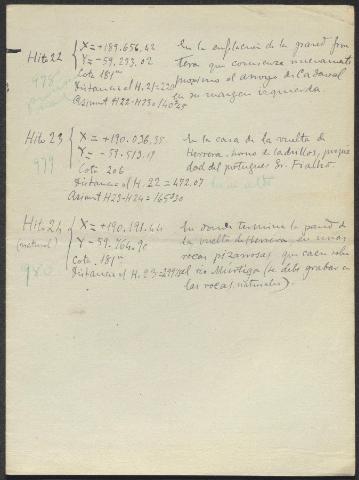 Hito 22
X = +189.656.42
Y = -59.293.02
Cota 181m
Distancia al H.21=220
Azimut H22-H23=140º25
978
En la enfilación de la pared fron
tera que comienza nuevamente
próximo al arroyo de Cadaval
en su margen izquierda.
Hito 23
X = +190.036.35
Y = -59.573.19
Cota 206
Distancia al H.22=472.07
Azimut H23-H24=165º30
979
En la casa de la vuelta de
Herrera, horno de ladrillos, propie
dad del portugues Sr. Fialho
Hito 24
(natural)
X = +190.191.44
Cota 181m
Distancia al H.23=
980
En donde termina la pared de
la vuelta de Herrera, en unas
rocas pizarrosas que caen sobre
el rio Murtiga (se debe grabar en
las rocas naturales).